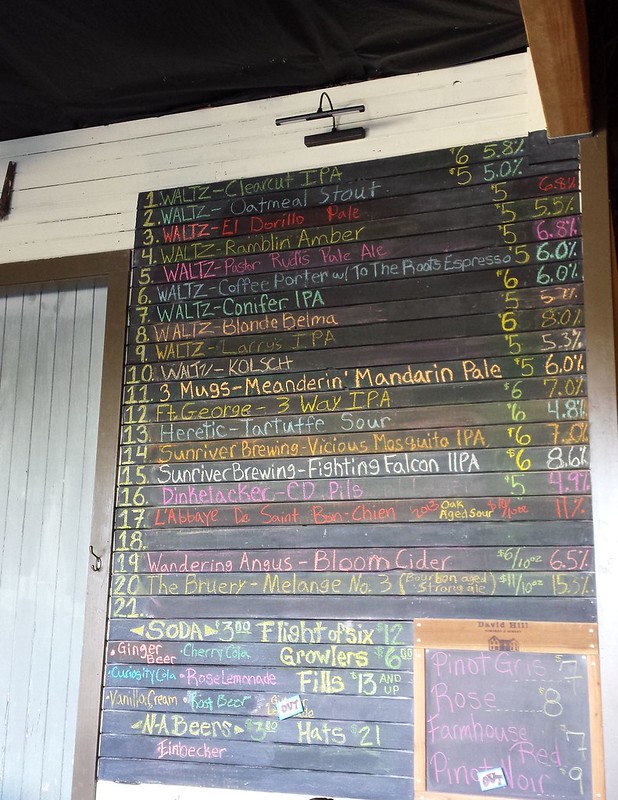 1. WALTZ-Clearcut IPA $6 5.8%
2. WALTZ-Oatmeal Stout $5 5.0%
3. WALTZ-El Dorillo Pale $5 6.8%
4. WALTZ-Ramblin Amber $5 5.5%
5. WALTZ-Pastor Rudis Pale Ale $5 6.8%
6. WALTZ-Coffee Porter w/ To The Roots Espresso $5 6.0%
7. WALTZ-Conifer IPA $6 6.0%
8. WALTZ-Blonde Belma $5
9. WALTZ-Larrys IPA $6 8.0%
10. WALTZ-KOLSCH $5 5.3%
11. 3 Mugs-Meanderin' Mandarin Pale $5 6.0%
12. Ft. George-3 Way IPA $6 7.0%
13. Heretic-Tartuffe Sour $6 4.8%
14. Sunriver Brewing-Vicious Mosquito IPA $6 7.0%
15. Sunriver Brewing-Fighting Falcon IIPA $6 8.6%
16. Dinkelacker-CD Pils $5 4.9%
17. L'Abbaye De Saint Bon-Chien 2013 Oak Aged Sour 11%
18.
19. Wandering Angus-Bloom Cider $6/10oz 6.5%
20. The Bruery-Melange No. 3 (Bourbon aged Strong ale) $11/10oz 15.3%
21.
SODA $3.00
Ginger Beer · Cherry Cola
Curiosity Cola · Rose Lemonade
Vanilla Cream · Root Beer
OUT
N-A Beers $3.00
Einbecker
Flight of six $12
Growlers $6.00
Fills $13 AND UP
Hats $21
David Hill
Pinot Gris $7
Rose $8
Farmhouse Red $7
Pinot Noir $9
OUT